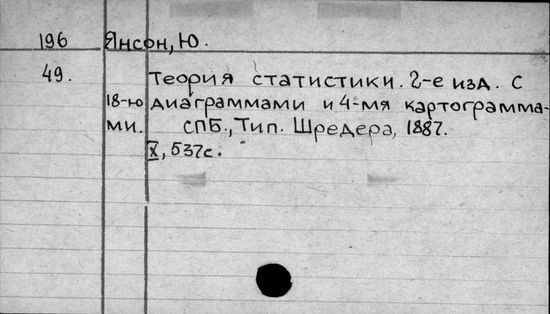 196 Янсон, Ю.
49. Теория статистики. 2-е изд. с
18-ю диаграммами и 4-мя картограмма-
ми. СПБ., Тип. Шредера, 1887.
X, 537с.